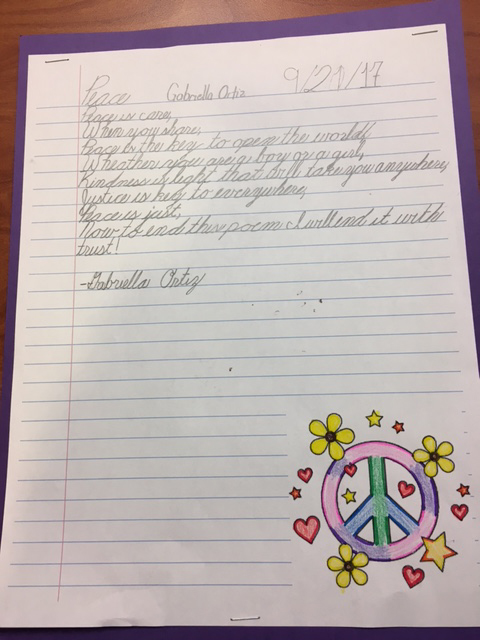 Peace Gabriella Ortiz 9/21/17
Peace is care,
When you share,
Peace is the key to open the world,
Wheather you are a boy or a girl,
Kindness is light that will take you anywhere,
Justice is key to everywhere,
Peace is just,
Now to end this poem I will end it with
trust!
-Gabriella Ortiz